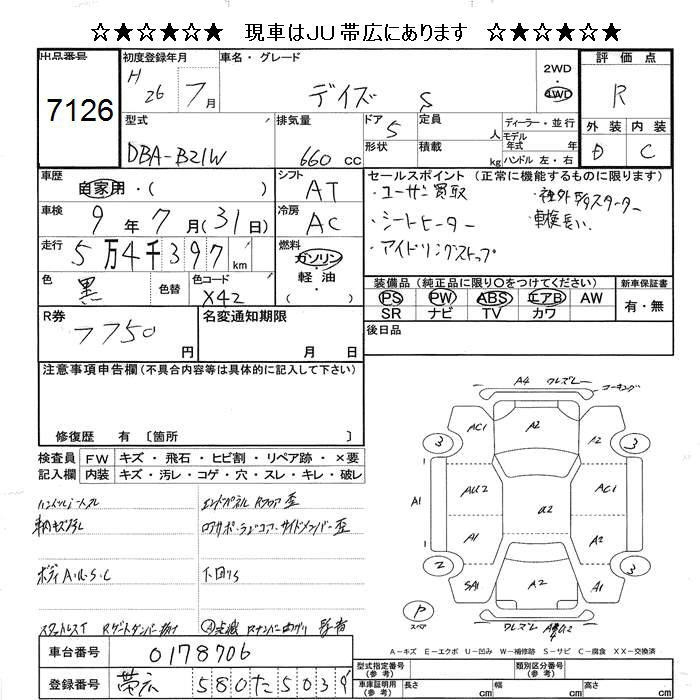 ☆★☆★☆★ 現車はJU帯広にあります ☆★☆★☆★
出品番号 初度登録年月 車名・グレード 評価点
7126 H 26 7月 デイズ S 2WD 4WD R
型式 排気量 ドア 5 定員 人 ディーラー・並行 外装 内装
DBA-B21W 660 cc 形状 積載 kg モデル年式 年式 ハンドル 左・右 D C
車歴 自家用・( ) シフト AT セールスポイント(正常に機能するものに限ります)
・ユーザー買取 ・社外エンスターター
車検 9年7月(31日) 冷房 AC ・シートヒーター ・車検長い
走行 5万4千397km 燃料 ガソリン ・アイドリングストップ
軽油 ( )
色 黒 色替 色コード X42 装備品(純正品に限り○をつけてください) 新車保証書
PS PW ABS エアB AW 有・無
SR ナビ TV カワ
R券 7750円 名変通知期限 月 日 後日品
注意事項申告欄(不具合内容等は具体的に記入して下さい)
修復歴 有 〔箇所 〕
検査員記入欄 FW キズ・飛石・ヒビ割・リペア跡・×要
内装 キズ・汚レ・コゲ・穴・スレ・キレ・破レ
ハンドルスレ エンドパネル Rフロア歪
ボディA・U・S・C 下回りS
A4
コーキング
3 AC1 A2 A2 3
A1 AU2 U2 AC1 1
A1 A2
2 SA1 A2 A1 3
P スペア
A-キズ E-エクボ U-凹み W-補修跡 S-サビ C-腐食 XX-交換済
車台番号 0178706
登録番号 帯広 580 た 5039
型式指定番号(参考) 類別区分番号(参考)
車庫証明用(参考) 長さ cm 幅 cm 高さ cm